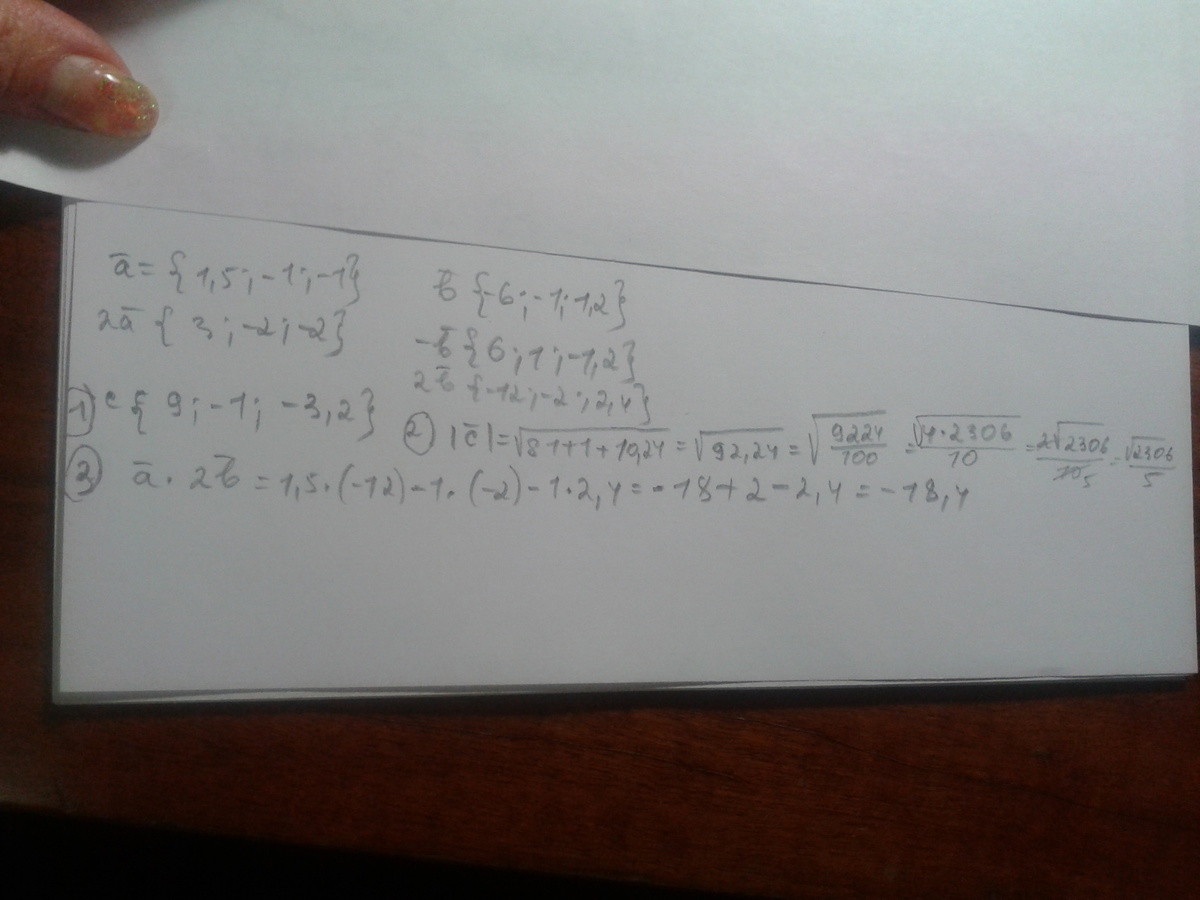 a̅ = {1,5; -1; -1}
b̅ {-6; -1; 1,2}
2a̅ {3; -2; -2}
-b̅ {6; 1; -1,2}
2b̅ {-12; -2; 2,4}
1) c̅ {9; -1; -3,2}
2) |c̅| = √(81+1+10,24) = √92,24 = √(9224/100) = √(4·2306)/10 = 2√2306/10 5 = √2306/5
3) a̅ · 2b̅ = 1,5·(-12)-1·(-2)-1·2,4 = -18+2-2,4 = -18,4